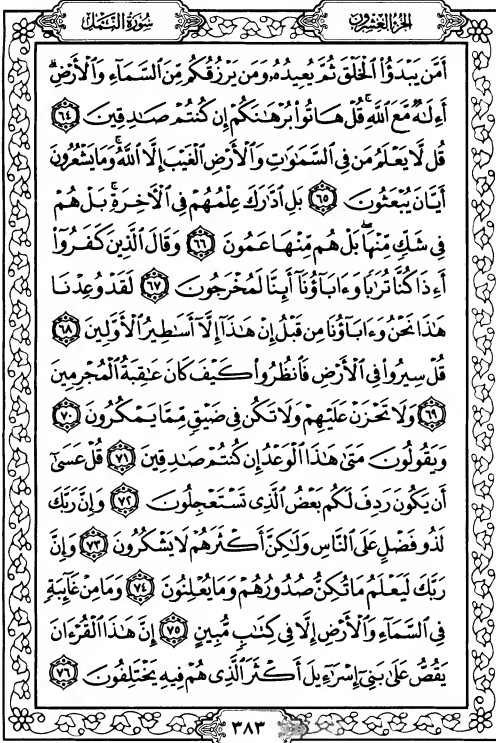 سُورَةُ النَّمْلِ
الجُزءُ العِشْرُونَ
أَمَّن يَبْدَؤُاْ الْخَلْقَ ثُمَّ يُعِيدُهُۥ وَمَن يَرْزُقُكُم مِّنَ السَّمَآءِ وَالْأَرْضِۗ
أَءِلَٰهٌ مَّعَ اللَّهِۚ قُلْ هَاتُواْ بُرْهَٰنَكُمْ إِن كُنتُمْ صَٰدِقِينَ ﴿٦٤﴾
قُل لَّا يَعْلَمُ مَن فِي السَّمَٰوَٰتِ وَالْأَرْضِ الْغَيْبَ إِلَّا اللَّهُۚ وَمَا يَشْعُرُونَ
أَيَّانَ يُبْعَثُونَ ﴿٦٥﴾ بَلِ ادَّٰرَكَ عِلْمُهُمْ فِي الْأٓخِرَةِۚ بَلْ هُمْ
فِي شَكٍّ مِّنْهَاۖ بَلْ هُم مِّنْهَا عَمُونَ ﴿٦٦﴾ وَقَالَ الَّذِينَ كَفَرُوٓاْ
أَءِذَا كُنَّا تُرَٰبًا وَءَابَآؤُنَآ أَئِنَّا لَمُخْرَجُونَ ﴿٦٧﴾ لَقَدْ وُعِدْنَا
هَٰذَا نَحْنُ وَءَابَآؤُنَا مِن قَبْلُ إِنْ هَٰذَآ إِلَّآ أَسَٰطِيرُ الْأَوَّلِينَ ﴿٦٨﴾
قُلْ سِيرُواْ فِي الْأَرْضِ فَانظُرُواْ كَيْفَ كَانَ عَٰقِبَةُ الْمُجْرِمِينَ
﴿٦٩﴾ وَلَا تَحْزَنْ عَلَيْهِمْ وَلَا تَكُن فِي ضَيْقٍ مِّمَّا يَمْكُرُونَ ﴿٧٠﴾
وَيَقُولُونَ مَتَىٰ هَٰذَا الْوَعْدُ إِن كُنتُمْ صَٰدِقِينَ ﴿٧١﴾ قُلْ عَسَىٰٓ
أَن يَكُونَ رَدِفَ لَكُم بَعْضُ الَّذِي تَسْتَعْجِلُونَ ﴿٧٢﴾ وَإِنَّ رَبَّكَ
لَذُو فَضْلٍ عَلَى النَّاسِ وَلَٰكِنَّ أَكْثَرَهُمْ لَا يَشْكُرُونَ ﴿٧٣﴾ وَإِنَّ
رَبَّكَ لَيَعْلَمُ مَا تُكِنُّ صُدُورُهُمْ وَمَا يُعْلِنُونَ ﴿٧٤﴾ وَمَا مِنْ غَآئِبَةٍ
فِي السَّمَآءِ وَالْأَرْضِ إِلَّا فِي كِتَٰبٍ مُّبِينٍ ﴿٧٥﴾ إِنَّ هَٰذَا الْقُرْءَانَ
يَقُصُّ عَلَىٰ بَنِيٓ إِسْرَٰٓءِيلَ أَكْثَرَ الَّذِي هُمْ فِيهِ يَخْتَلِفُونَ ﴿٧٦﴾
٣٨٣